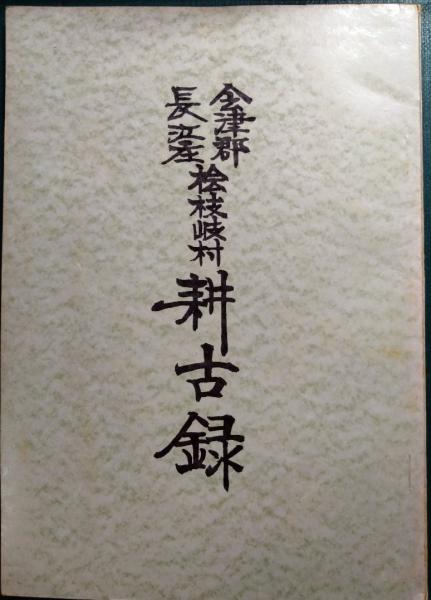 会津郡
長江庄
桧枝岐村
耕古録